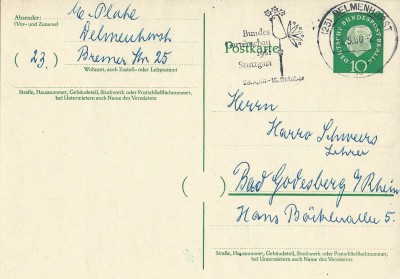 Absender:
(Vor- und Zuname)
M. Plate
Delmenhorst
(23) Bremer Str. 25
Wohnort, auch Zustell- oder Leitpostamt
Straße, Hausnummer, Gebäudeteil, Stockwerk oder Postschließfachnummer,
bei Untermietern auch Name des Vermieters
Bundes
Gartenschau
1961
Stuttgart
(23) DELMENHORST
DEUTSCHE BUNDESPOST BERLIN
10
Postkarte
Herrn
Harro Schweers
Lehrer
( ) Bad Godesberg a/Rhein
Hans Böcklerallee 5.
Straße, Hausnummer, Gebäudeteil, Stockwerk oder Postschließfachnummer,
bei Untermietern auch Name des Vermieters